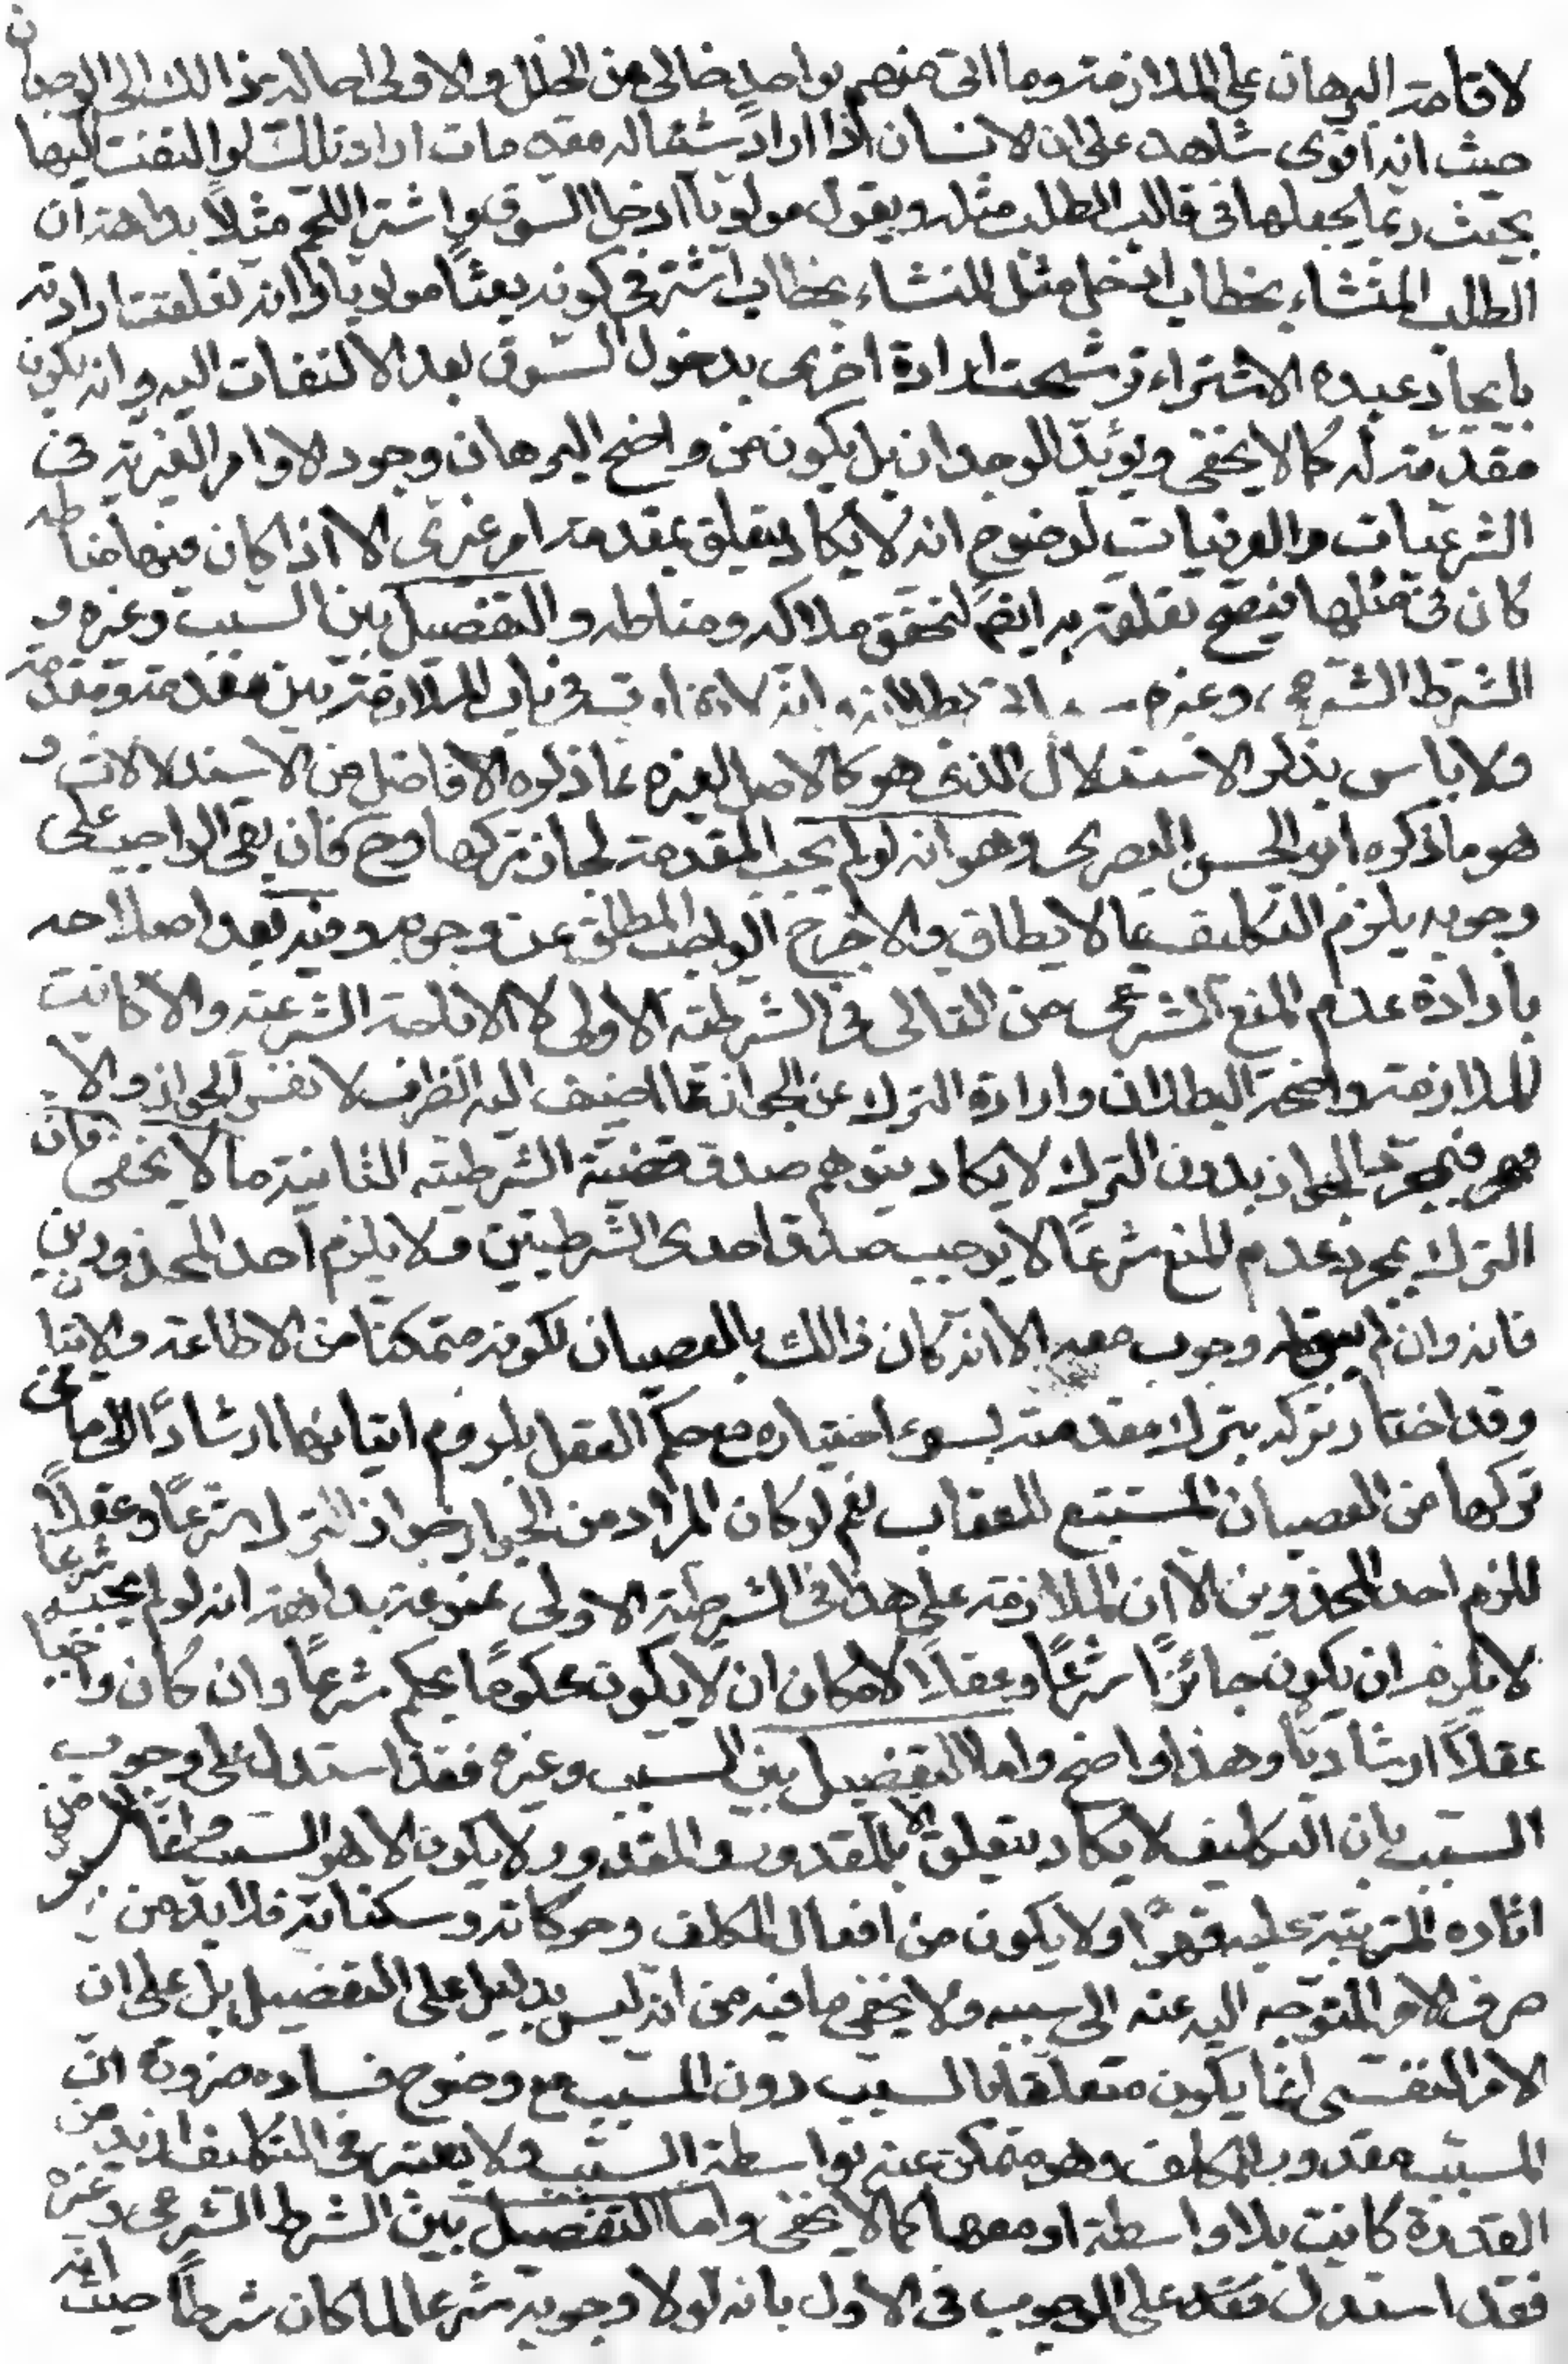 لاقامة البرهان على الملازمة وما اتى منهم بواحد خالى عن الخلل والاولى احالة ذالك الى الوجدان
حيث انه اقوى شاهد على ان لانسان اذا اراد شيئا له مقدمات اراد تلك لو التفت اليها
بحيث ربما يجعلها فى قالب الطلب مثله ويقول مولويا ادخل السوق واشتر اللحم مثلاً بداهة ان
الطلب المنشاء بخطاب ادخل مثل المنشاء بخطاب اشتر فى كونه بعثاً مولويا وانه تعلقت ارادته
بايجاد عبده الاشتراء ترشحت ارادة اخرى بدخول السوق بعد الالتفات اليه وانه يكون
مقدمة له كما لا يخفى ويؤيد الوجدان بل يكون من واضح البرهان وجود الاوامر الغيرية فى
الشرعيات والعرفيات لوضوح انه لا يكاد يتعلق بمقدمة امر غيرى الا اذا كان فيها مناطه
كان فى مثلها فيصح تعلقه به ايضً لتحقق ملاكه ومناطه والتفصيل بين السبب وغيره و
الشرط الشرعى وغيره بطلانه وانه لا تفاوت فى باب الملازمة بين مقدمة ومقدمة
ولا باس بذكر الاستدلال الذى هو كالاصل لغيره مما ذكره الافاضل من الاستدلالات و
هو ما ذكره ابو الحسن البصرى وهو انه لو لم يجب المقدمة لجاز تركها وح فان بقى الواجب على
وجوبه يلزم التكليف بما لا يطاق والا خرج الواجب المطلق عن وجوبه وفيه بعد اصلاحه
بارادة عدم المنع الشرعى من التالى فى الشرطية الاولى لا الاباحة الشرعية والا كانت
الملازمة واضحة البطلان وارادة الترك عن الجواز عما اضيف اليه الظرف لا نفس الجواز والا
فبمجرد الجواز بدون الترك لا يكاد يتوهم صدق قضية الشرطية الثانية ما لا يخفى فان
الترك بمجرد عدم المنع شرعاً لا يوجب صدق احدى الشرطيتين ولا يلزم احد المحذورين
فانه وان لم يبق له وجوب معه الا انه كان ذالك بالعصيان لكونه متمكنا من الاطاعة والاتيان
وقد اختار تركه بترك مقدمته بسوء اختياره مع حكم العقل بلزوم اتيانها ارشاداً الى ما فى
تركها من العصيان المستتبع للعقاب نعم لو كان المراد من الجواز جواز الترك شرعاً وعقلاً
للزم احد المحذورين الا ان الملازمة على هذا فى الشرطية الاولى ممنوعة بداهة انه لو لم يجب شرعا
لا يلزم ان يكون جائزاً شرعاً وعقلاً لامكان ان لا يكون محكوماً بحكم شرعاً وان كان واجبا
عقلاً ارشادياً وهذا واضح واما التفصيل بين السبب وغيره فقد استدل على وجوب
السبب بان التكليف لا يكاد يتعلق الا بالمقدور والمقدور لا يكون الا هو السبب وانما المسبب من
اثاره المترتبة عليه قهراً ولا يكون من افعال المكلف وحركاته وسكناته فلا بد من
صرف الامر المتوجه اليه عنه الى سببه ولا يخفى ما فيه من انه ليس بدليل على التفصيل بل على ان
الامر النفسى انما يكون متعلقا بالسبب دون المسبب مع وضوح فساده ضرورة ان
المسبب مقدور المكلف وهو متمكن عنه بواسطة السبب ولا يعتبر فى التكليف ازيد من
القدرة كانت بلا واسطة او معها كما لا يخفى واما التفصيل بين الشرط الشرعى وغيره
فقد استدل فقد على الوجوب فى الاول بانه لولا وجوبه شرعا لما كان شرطاً حيث انه